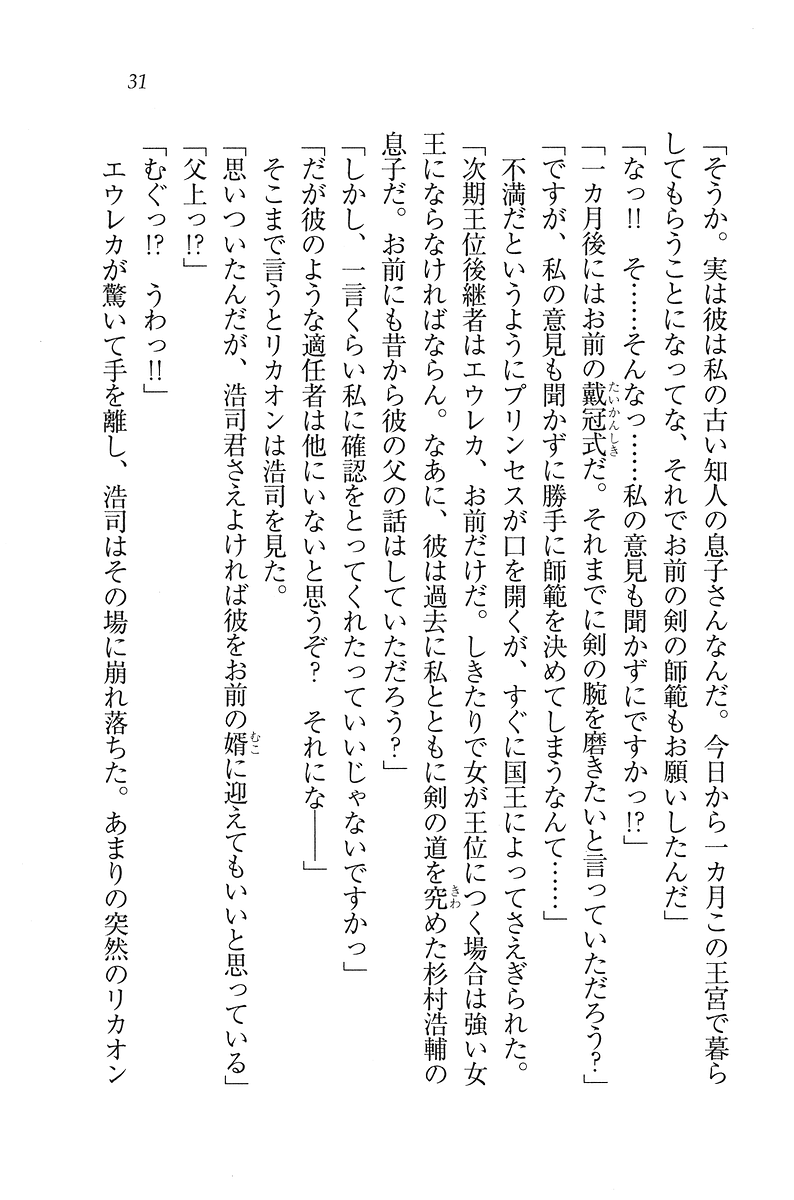 31
「そうか。実は彼は私の古い知人の息子さんなんだ。今日から一カ月この王宮で暮ら
してもらうことになってな、それでお前の剣の師範もお願いしたんだ」
「なっ!! そ……そんなっ……私の意見も聞かずにですかっ!?」
「一カ月後にはお前の戴冠式だ。それまでに剣の腕を磨きたいと言っていただろう?」
たいかんしき
「ですが、私の意見も聞かずに勝手に師範を決めてしまうなんて……」
不満だというようにプリンセスが口を開くが、すぐに国王によってさえぎられた。
「次期王位後継者はエウレカ、お前だけだ。しきたりで女が王位につく場合は強い女
王にならなければならん。なあに、彼は過去に私とともに剣の道を究めた杉村浩輔の
きわ
息子だ。お前にも昔から彼の父の話はしていただろう?」
「しかし、一言くらい私に確認をとってくれたっていいじゃないですかっ」
「だが彼のような適任者は他にいないと思うぞ? それにな――」
そこまで言うとリカオンは浩司を見た。
「思いついたんだが、浩司君さえよければ彼をお前の婿に迎えてもいいと思っている」
むこ
「父上っ!?」
「むぐっ!? うわっ!!」
エウレカが驚いて手を離し、浩司はその場に崩れ落ちた。あまりの突然のリカオン